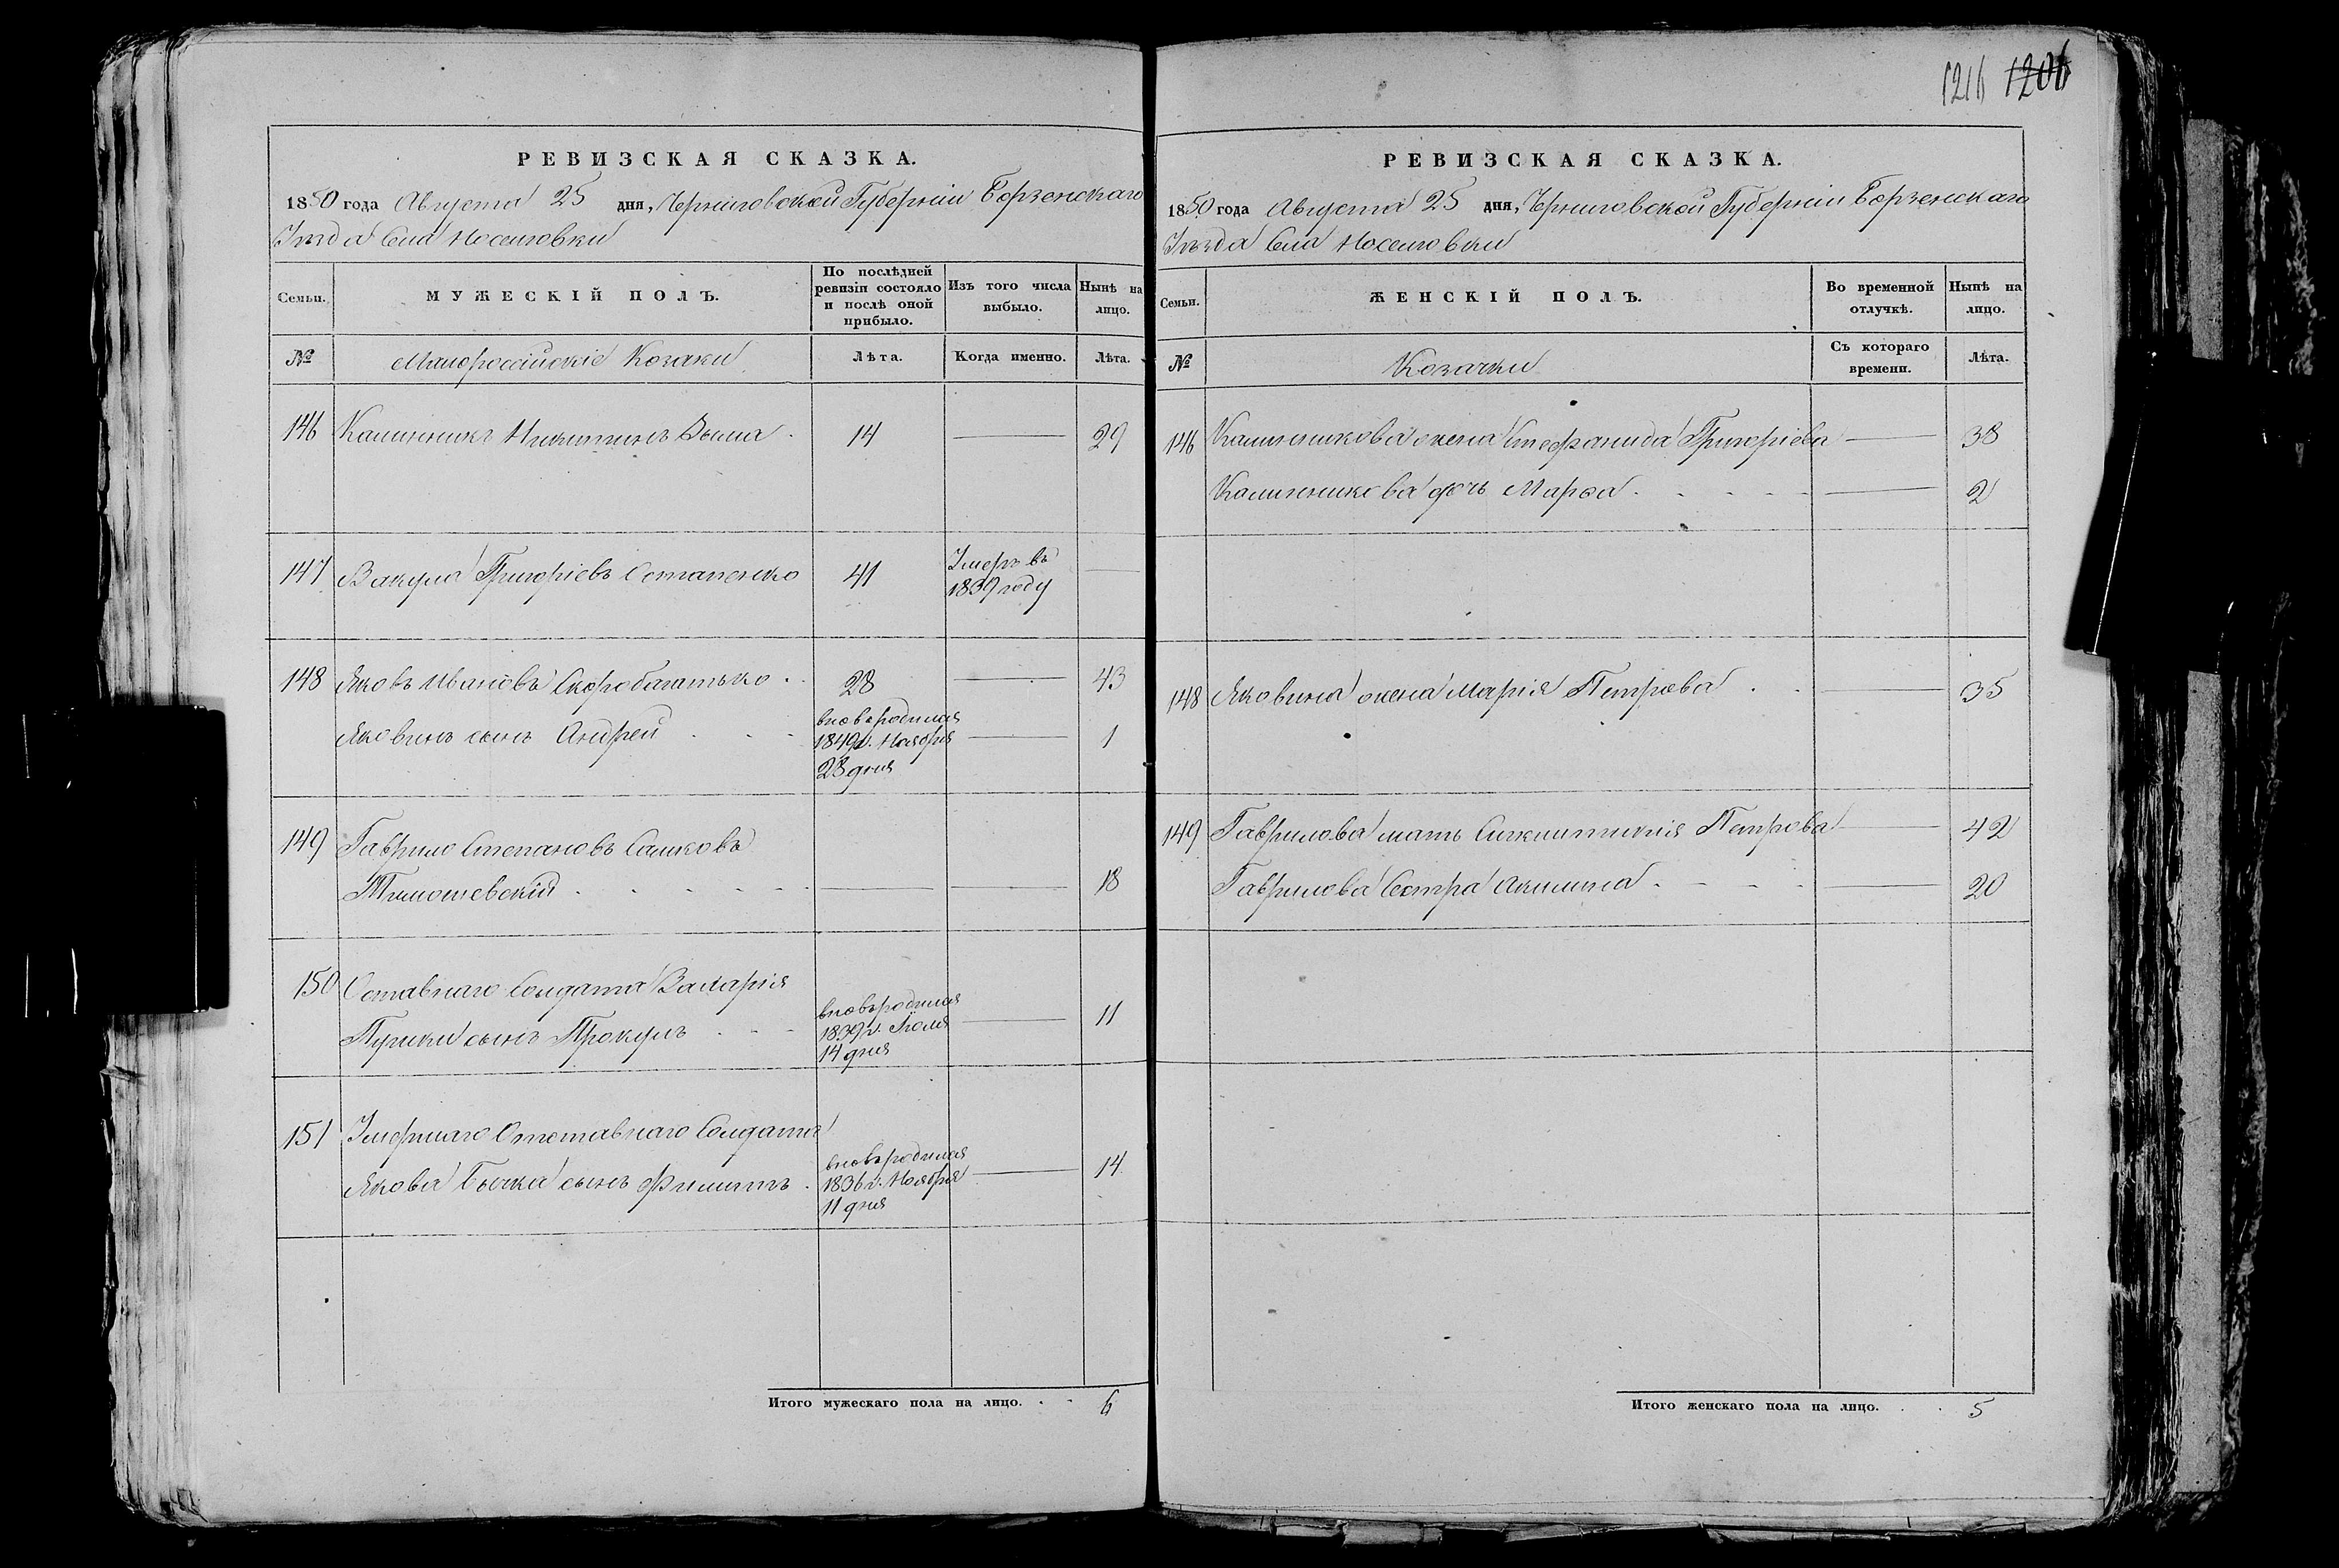 1216 1206
РЕВИЗСКАЯ СКАЗКА.
1850 года Августа 25 дня, Черниговской Губерніи Борзенскаго
Уѣзда Села Носеловки
Семьи.
МУЖЕСКІЙ ПОЛЪ.
По послѣдней
ревизіи состояло
и послѣ оной
прибыло.
Изъ того числа
выбыло.
Нынѣ на
лицо.
№
Малороссійскіе Козаки
Лѣта.
Когда именно.
Лѣта.
146 Калинникъ Никитинъ 14 29
147 Вакула Григоріевъ Остапенко 41
Умеръ въ
1839 году
148 Яковъ Ивановъ Скоробагатько 28 43
Яковинъ сынъ Андрей
вновьродился
1849 г. Ноября
28 дня
1
149 Гаврило Степановъ Сашковъ
Тимошевскій 18
150 Отставнаго Солдата
Пугики сынъ Прокулъ
вновьродился
1839 г. Іюля
14 дня
11
151 Умершаго Отставнаго Солдата
Якова Бычка сынъ Филиппъ
вновьродился
1836 г. Ноября
11 дня
14
Итого мужескаго пола на лицо. 6
РЕВИЗСКАЯ СКАЗКА.
1850 года Августа 25 дня, Черниговской Губерніи Борзенскаго
Уѣзда Села Носеловки
Семьи.
ЖЕНСКІЙ ПОЛЪ.
Во временной
отлучкѣ.
Нынѣ на
лицо.
№
Козачки
Съ котораго
времени.
Лѣта.
146 Калинникова жена Стефанида Григоріева 38
Калинникова дочь Марѳа 2
148 Яковина жена Марія Петрова 35
149 Гаврилова мать Петрова 42
Гаврилова Сестра Акилина 20
Итого женскаго пола на лицо. 5